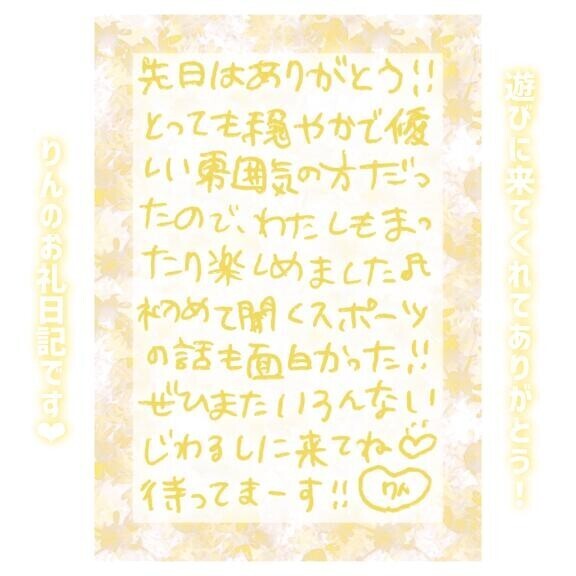 遊びに来てくれてありがとう！
先日はありがとう!!
とっても穏やかで優
しい雰囲気の方だっ
たので、わたしもまっ
たり楽しめました♬
初めて聞くスポーツ
の話も面白かった!!
ぜひまたいろんない
じわるしに来てね♡
待ってまーす!! りん
りんのお礼日記です❤